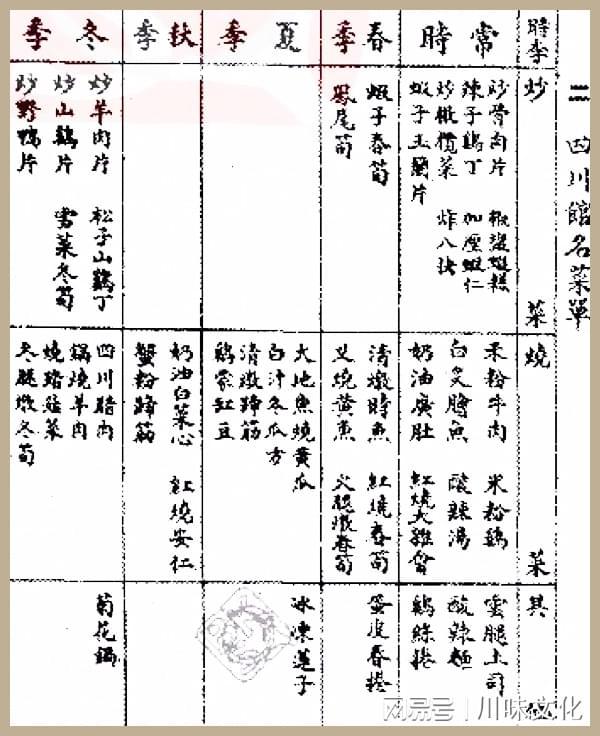 二 四川館名菜單
時季
炒菜
燒菜
其他
常時
炒骨肉片
椒鹽蝦糕
辣子鷄丁
加厘蝦仁
炒橄欖菜
炸八块
蝦子玉蘭片
米粉牛肉
米粉鷄
白炙膾魚
酸辣湯
奶油廣肚
紅燒大雜會
雲腿土司
酸辣麵
鷄絲捲
春季
蝦子春筍
鳳尾筍
清燉時魚
紅燒春筍
叉燒黄魚
火腿燉春筍
蛋皮春捲
夏季
大地魚燒黄瓜
白汁冬瓜方
清燉蹄筋
鷄蒙豇豆
冰凍蓮子
秋季
奶油白菜心
紅燒安仁
蟹粉蹄筋
冬季
炒羊肉片
松子山鷄丁
炒山鷄片
雪菜冬筍
炒野鴨片
四川腊肉
鍋燒羊肉
燒踏菰菜
冬腿燉冬筍
菊花鍋
搜狐号|川味文化